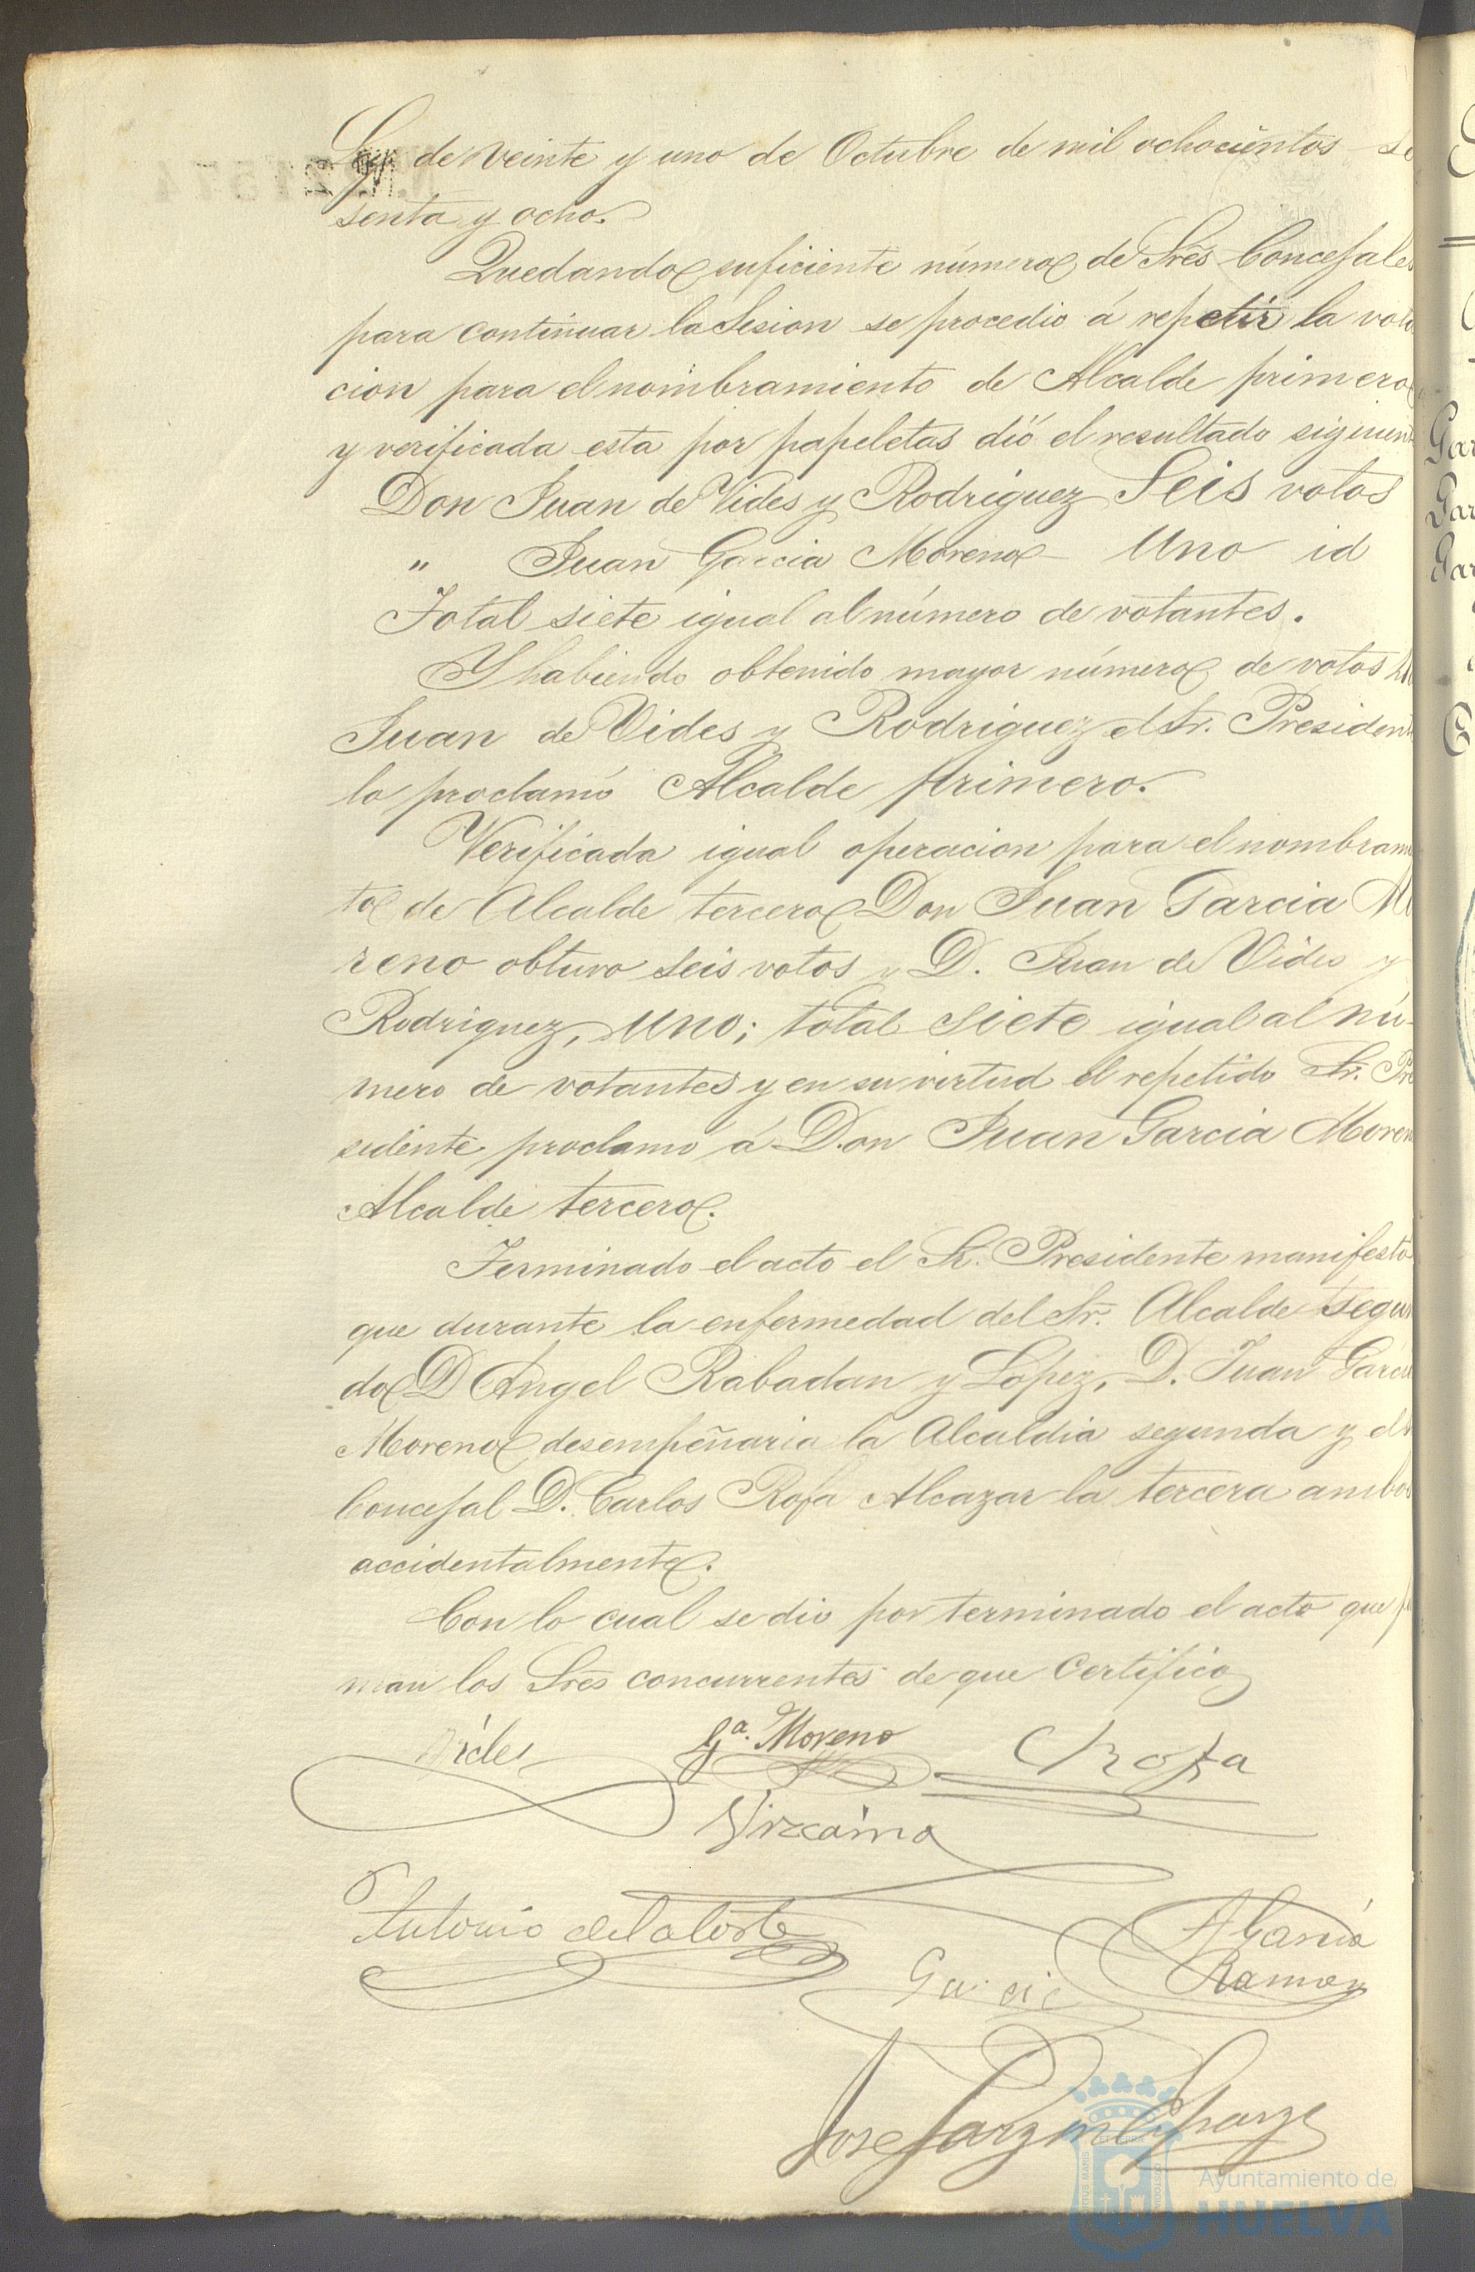 Ley de veinte y uno de Octubre de mil ochocientos se
senta y ocho.
Quedando suficiente número de Sres Concejales
para continuar la Sesion se procedio á repetir la vota
cion para el nombramiento de Alcalde primero
y verificada esta por papeletas dió el resultado siguient
Don Juan de Vides y Rodriguez Seis votos
" Juan Garcia Moreno Uno id
Total siete igual al número de votantes.
Y habiendo obtenido mayor número de votos
Juan de Vides y Rodriguez el Sr. President
lo proclamó Alcalde primero.
Verificada igual operacion para el nombram
to de Alcalde tercero Don Juan Garcia Mo
reno obtuvo seis votos y D. Juan de Vides y
Rodriguez, uno; total siete igual al nú-
mero de votantes y en su virtud el repetido Sr. Pre
sidente proclamo á Don Juan Garcia Moren
Alcalde tercero.
Terminado el acto el Sr. Presidente manifesto
que durante la enfermedad del Sr. Alcalde segun
do D Angel Rabadan y Lopez, D. Juan Garcia
Moreno desempeñaria la Alcaldia segunda y el
Concejal D. Carlos Rofa Alcazar la tercera ambos
accidentalmente.
Con lo cual se dio por terminado el acto que
man los Sres concurrentes de que Certifico
Vides
Ga. Moreno
C Rofa
Vizcaino
Antonio de la Corte
A Garcia
Ramos
Garcia
Jose Garz
Ayuntamiento de
HUELVA